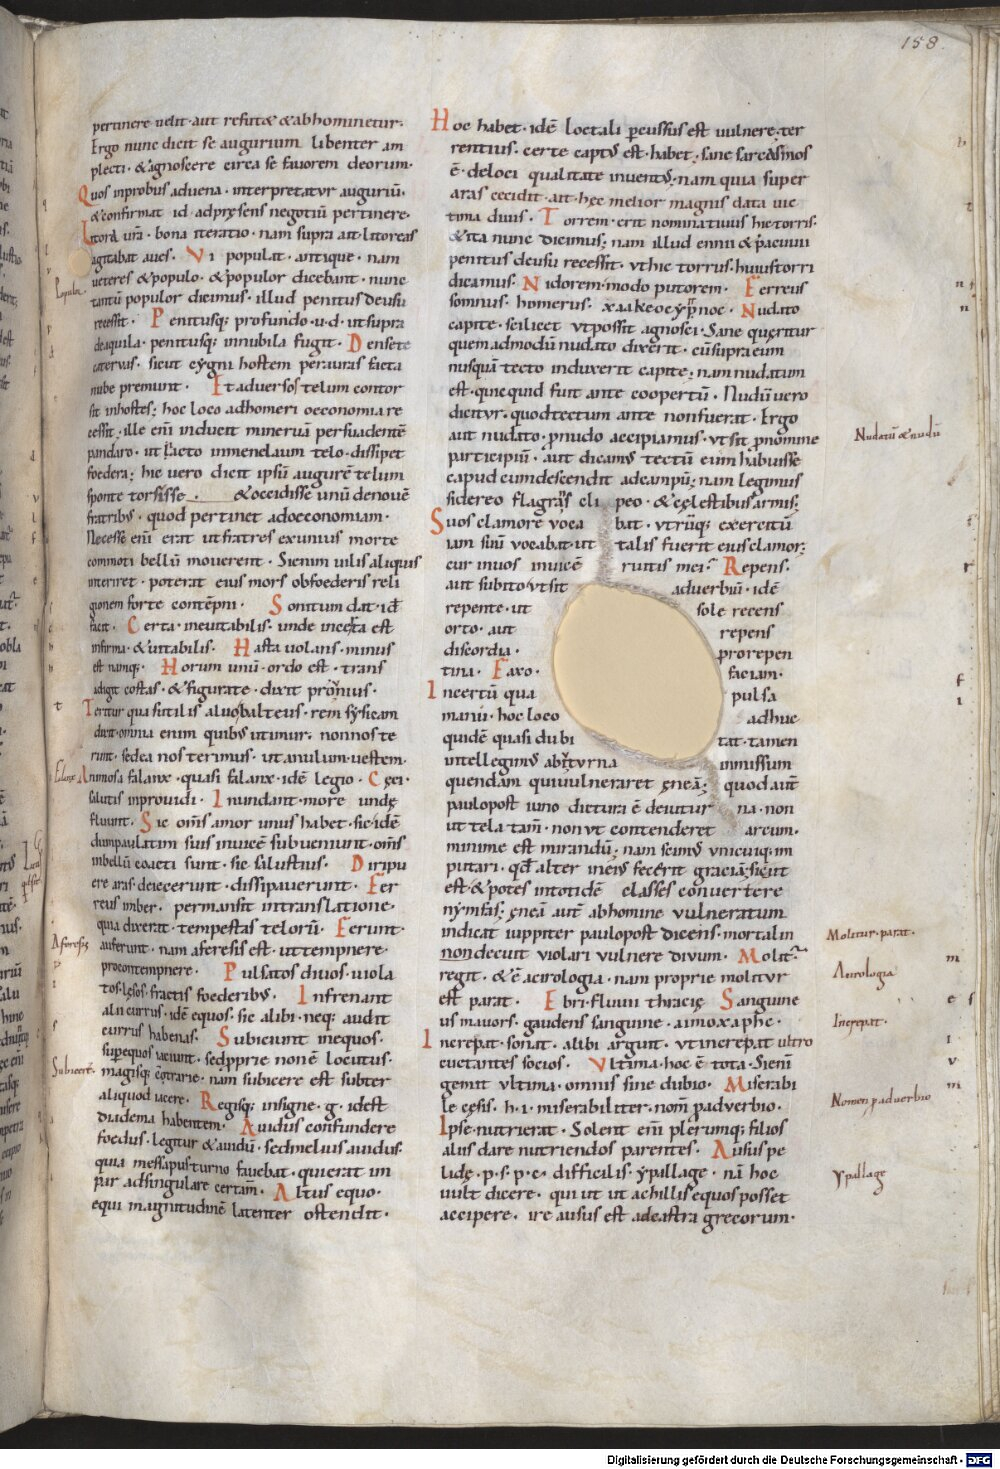 158
pertinere uelit· aut refutet & abhominetur·
Ergo nunc dicit se augurium libenter am
plecti· & agnoscere circa se fauorem deorum·
Quos inprobus aduena· interpretatur auguriū·
& confirmat id ad pręsens negotiū pertinere·
Litora ur̄a· bona iteratio· nam supra ait litoreas
agitabat aues· Vi populat· antique· nam
ueteres & populo· & populor dicebant· nunc
tantū populor dicimus· illud penitus de usu
recessit· Penitusq; profundo· u· d· ut supra
de aquila· penitusq; in nubila fugit· Densete
cateruas· sicut cygni hostem per auras facta
nube premunt· Et aduersos telum contor
sit in hostes; hoc loco ad homeri oeconomia re
cessit· ille eni̅ inducit mineruā persuadentē
pandaro· ut iacto in menelaum telo· dissipet
foedera; hic uero dicit ipsū augurē telum
sponte torsisse· & occidisse unū de nouē
fratribꝰ· quod pertinet ad oeconomiam·
Necesse eni̅ erat ut fratres ex unius morte
commoti bellū mouerent· Si enim uilis aliquis
interiret· poterat eius mors ob foederis reli
gionem forte contēpni· Sonitum dat· id̄
facit· Certa· ineuitabilis· unde incerta est
infirma· & uitabilis· Hasta uolans· minus
est namq;· Horum unū· ordo est· trans
adigit costas· & figurate· dixit pronius·
Teritur qua sutilis aluo balteus· rem physicam
dixit· omnia enim quibꝰ utimur· non nos te
runt· sed ea nos terimus· ut anulum· uestem·
Animosa falanx· quasi falanx· idē legio· Cęci·
salutis inprouidi· Inundant· more undę
fluunt· Sic om̄s amor unus habet· sic idē
dum paulatim suis inuicē subueniunt· om̄s
in bellū coacti sunt· sic salustius· Diripu
ere aras· deiecerunt· dissipauerunt· Fer
reus imber· permansit in translatione·
quia dixerat· tempestas telorū· Ferunt·
auferunt· nam aferesis est· ut tempnere·
pro contempnere· Pulsatos diuos· uiola
tos· lęsos· fractis foederibꝰ· Infrenant
alii currus· idē equos· sic alibi· neq; audit
currus habenas· Subiciunt in equos·
super equos iaciunt· sed pprie non ē locutus·
magisq; ētrarie· nam subicere est subter
aliquod iacere· Regisq; insigne· g· id est
diadema habentem· Auidus confundere
foedus· legitur & auidū· sed melius auidus·
quia messapus turno fauebat· qui erat im
par ad singulare certam̄· Altus equo·
equi magnitudinē latenter ostendit·
Hoc habet· idē loetali percussus est uulnere; ter
rentius· certe captꝰ est· habet; sane sarcasmos
ē· de loci qualitate inuentꝰ; nam quia super
aras cecidit· ait· hęc melior magnis data uic
tima diuis· Torrem· erit nominatiuus hic torris·
& ita nunc dicimus; nam illud ennii & pacuuii
penitus de usu recessit· ut hic torrus· huius torri
dicamus· Nidorem· modo putorem· Ferreus
somnus· homerus· χαλκεος ὕπνος· Nudato
capite· scilicet ut possit agnosci· Sane quęritur
quemadmodū nudato dixerit· cū supra eum
nusquā tecto induxerit capite; nam nudatum
est· quicquid fuit ante coopertū· Nudū uero
dicitur· quod tectum ante non fuerat· Ergo
aut nudato· p nudo accipiamus· ut sit p nomine
participiū· aut dicamꝰ tectū eum habuisse
caput cum descendit ad campū; nam legimus
sidereo flagrās cli peo· & cęlestibus armis;
Suos clamore voca bat· utrūq; exercitū
iam suū vocabat· ut talis fuerit eius clamor;
cur in uos inuicē ruitis mei· Repens·
aut subito· ut sit aduerbiū· idē
repente· ut sole recens
orto· aut repens
discordia· pro repen
tina· Faxo· faciam·
Incertū qua pulsa
manu· hoc loco adhuc
quidē quasi dubi tat· tamen
intellegimꝰ ab iuturna inmissum
quendam qui uulneraret ęneā; quod aut̄
paulo post iuno dictura ē de iutur na· non
ut tela tam̄· non ut contenderet arcum·
minime est mirandū; nam scimꝰ unicuiq; im
putari· qd̄ alter in eiꝰ fecerit graciā; sicut
est· & potes in totidē classes conuertere
nymfas; ęneā aut̄ ab homine uulneratum
indicat iuppiter paulo post dicens· mortalin
non decuit violari vulnere diuum· Molit̄·
regit· & ē acirologia· nam proprie molitur
est parat· Ebri· fluuii thracię Sanguine
us mauors· gaudens sanguine· aimoχaphc·
Increpat· sonat· alibi arguit· ut increpat ultro
cunctantes socios· Vltima· hoc ē tota· Si eni̅
gemit ultima· omnis sine dubio· Miserabi
le cęsis· h· i· miserabiliter· nom̄ p aduerbio·
Ipse nutrierat· Solent eni̅ plerumq; filios
aliis dare nutriendos parentes· Ausus pe
lidę· p· s· p· c· difficilis ypallage· nā hoc
uult dicere· qui ut ut achillis equos posset
accipere· ire ausus est ad castra grecorum·
Falanx
Aferesis
Subicere·
Nudatū & nudū
Molitur· parat·
Acirologia
Increpat·
Nomen p aduerbio
Ypallage
Digitalisierung gefördert durch die Deutsche Forschungsgemeinschaft - DFG